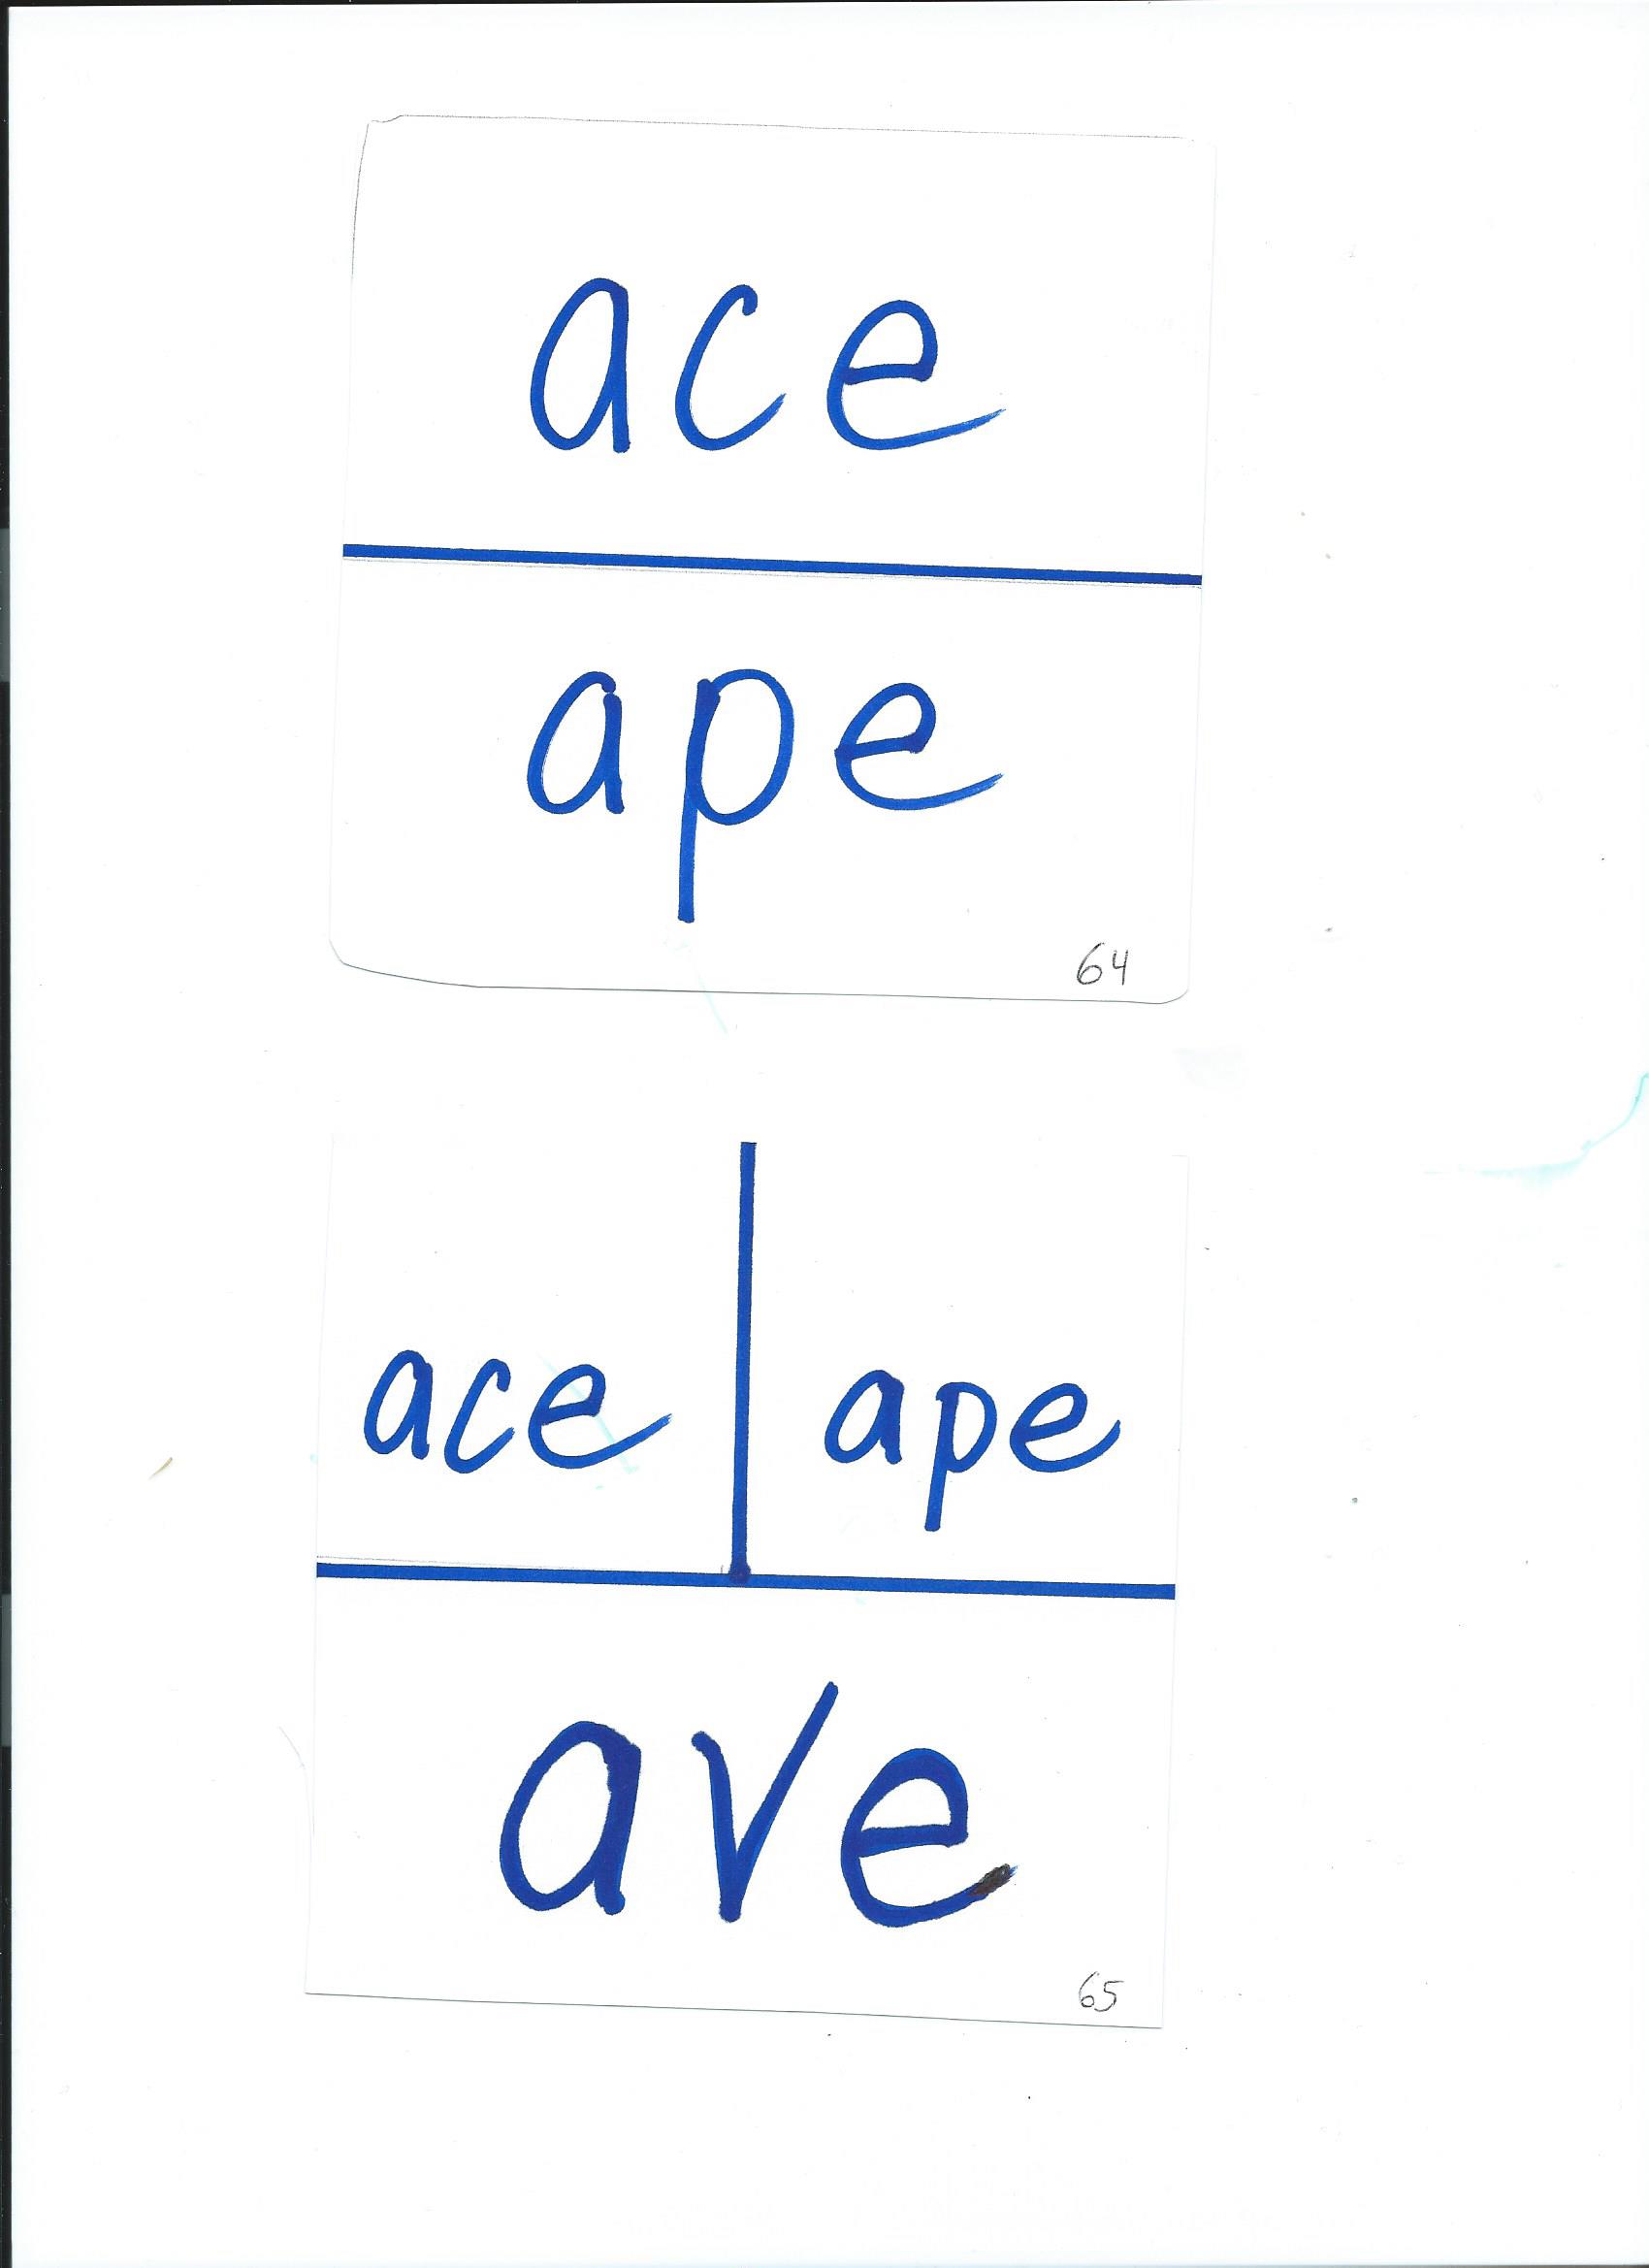 ace
ape
64
ace ape
ave
65